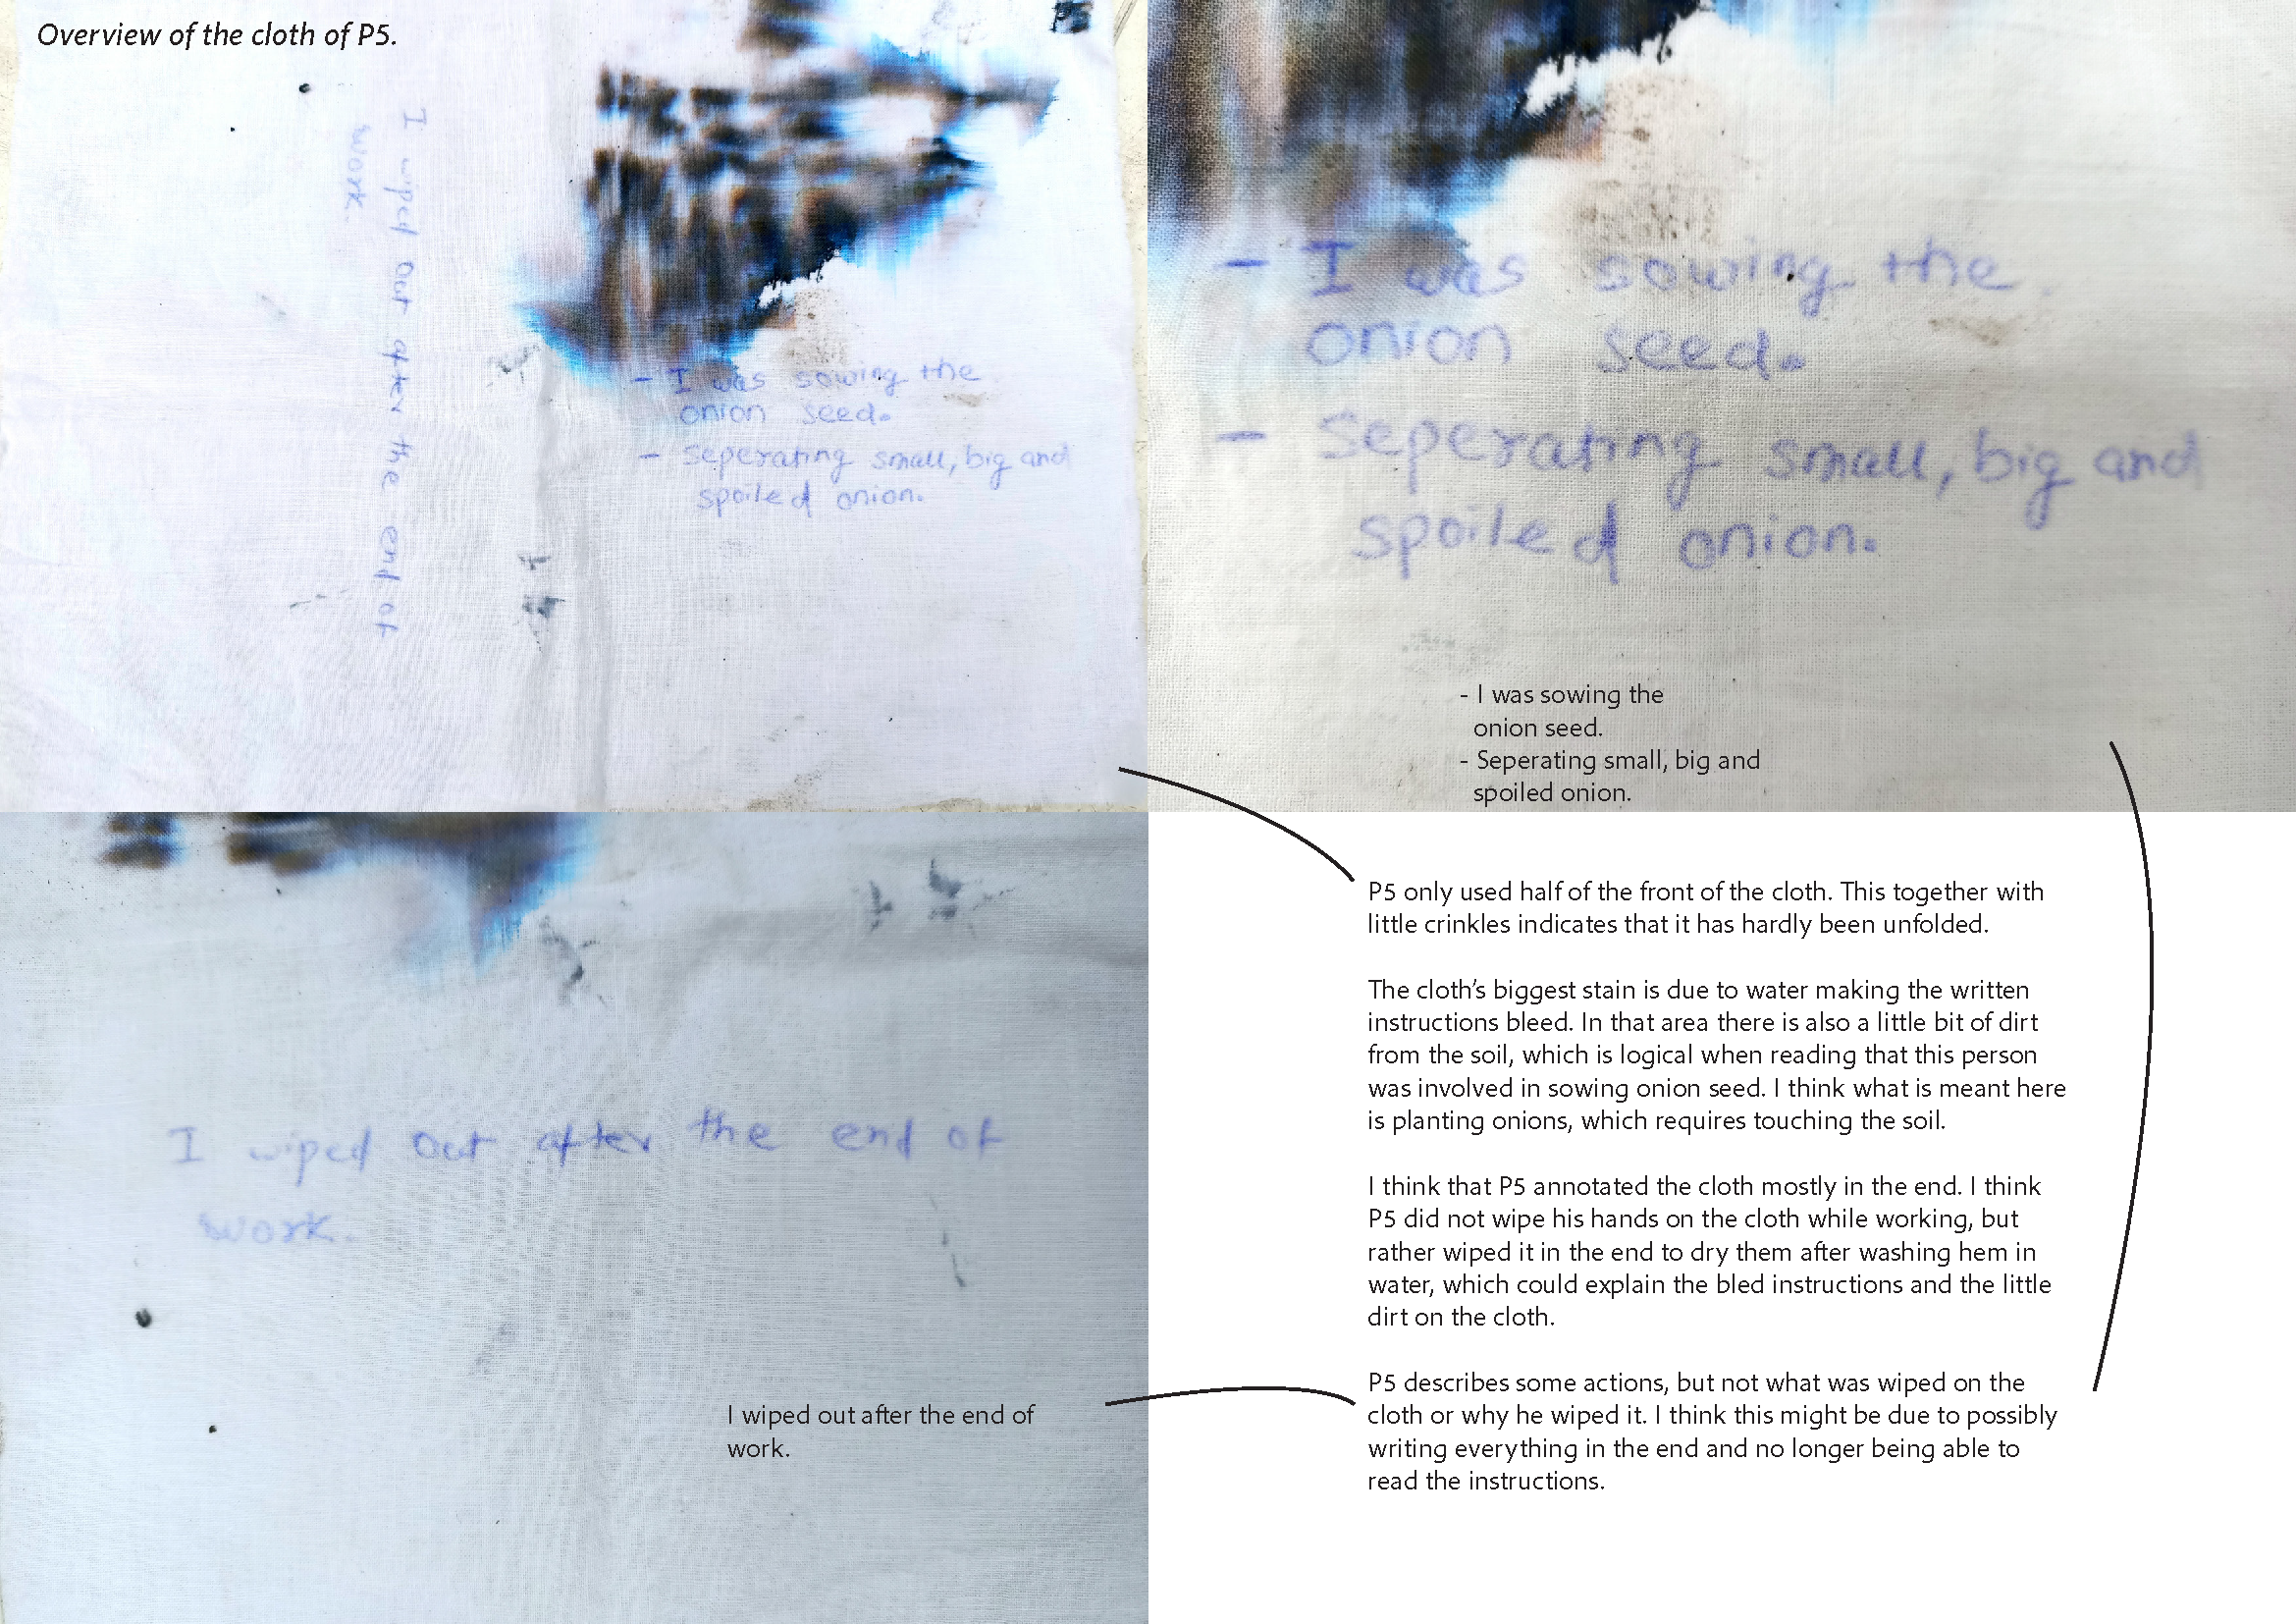 Overview of the cloth of P5.
I wiped out after the end of
work.
- I was sowing the
onion seed.
- Seperating small, big and
spoiled onion.
- I was sowing the
onion seed.
- Seperating small, big and
spoiled onion.
- I was sowing the
onion seed.
- Seperating small, big and
spoiled onion.
I wiped out after the end of
work.
I wiped out after the end of
work.
P5 only used half of the front of the cloth. This together with
little crinkles indicates that it has hardly been unfolded.
The cloth's biggest stain is due to water making the written
instructions bleed. In that area there is also a little bit of dirt
from the soil, which is logical when reading that this person
was involved in sowing onion seed. I think what is meant here
is planting onions, which requires touching the soil.
I think that P5 annotated the cloth mostly in the end. I think
P5 did not wipe his hands on the cloth while working, but
rather wiped it in the end to dry them after washing hem in
water, which could explain the bled instructions and the little
dirt on the cloth.
P5 describes some actions, but not what was wiped on the
cloth or why he wiped it. I think this might be due to possibly
writing everything in the end and no longer being able to
read the instructions.